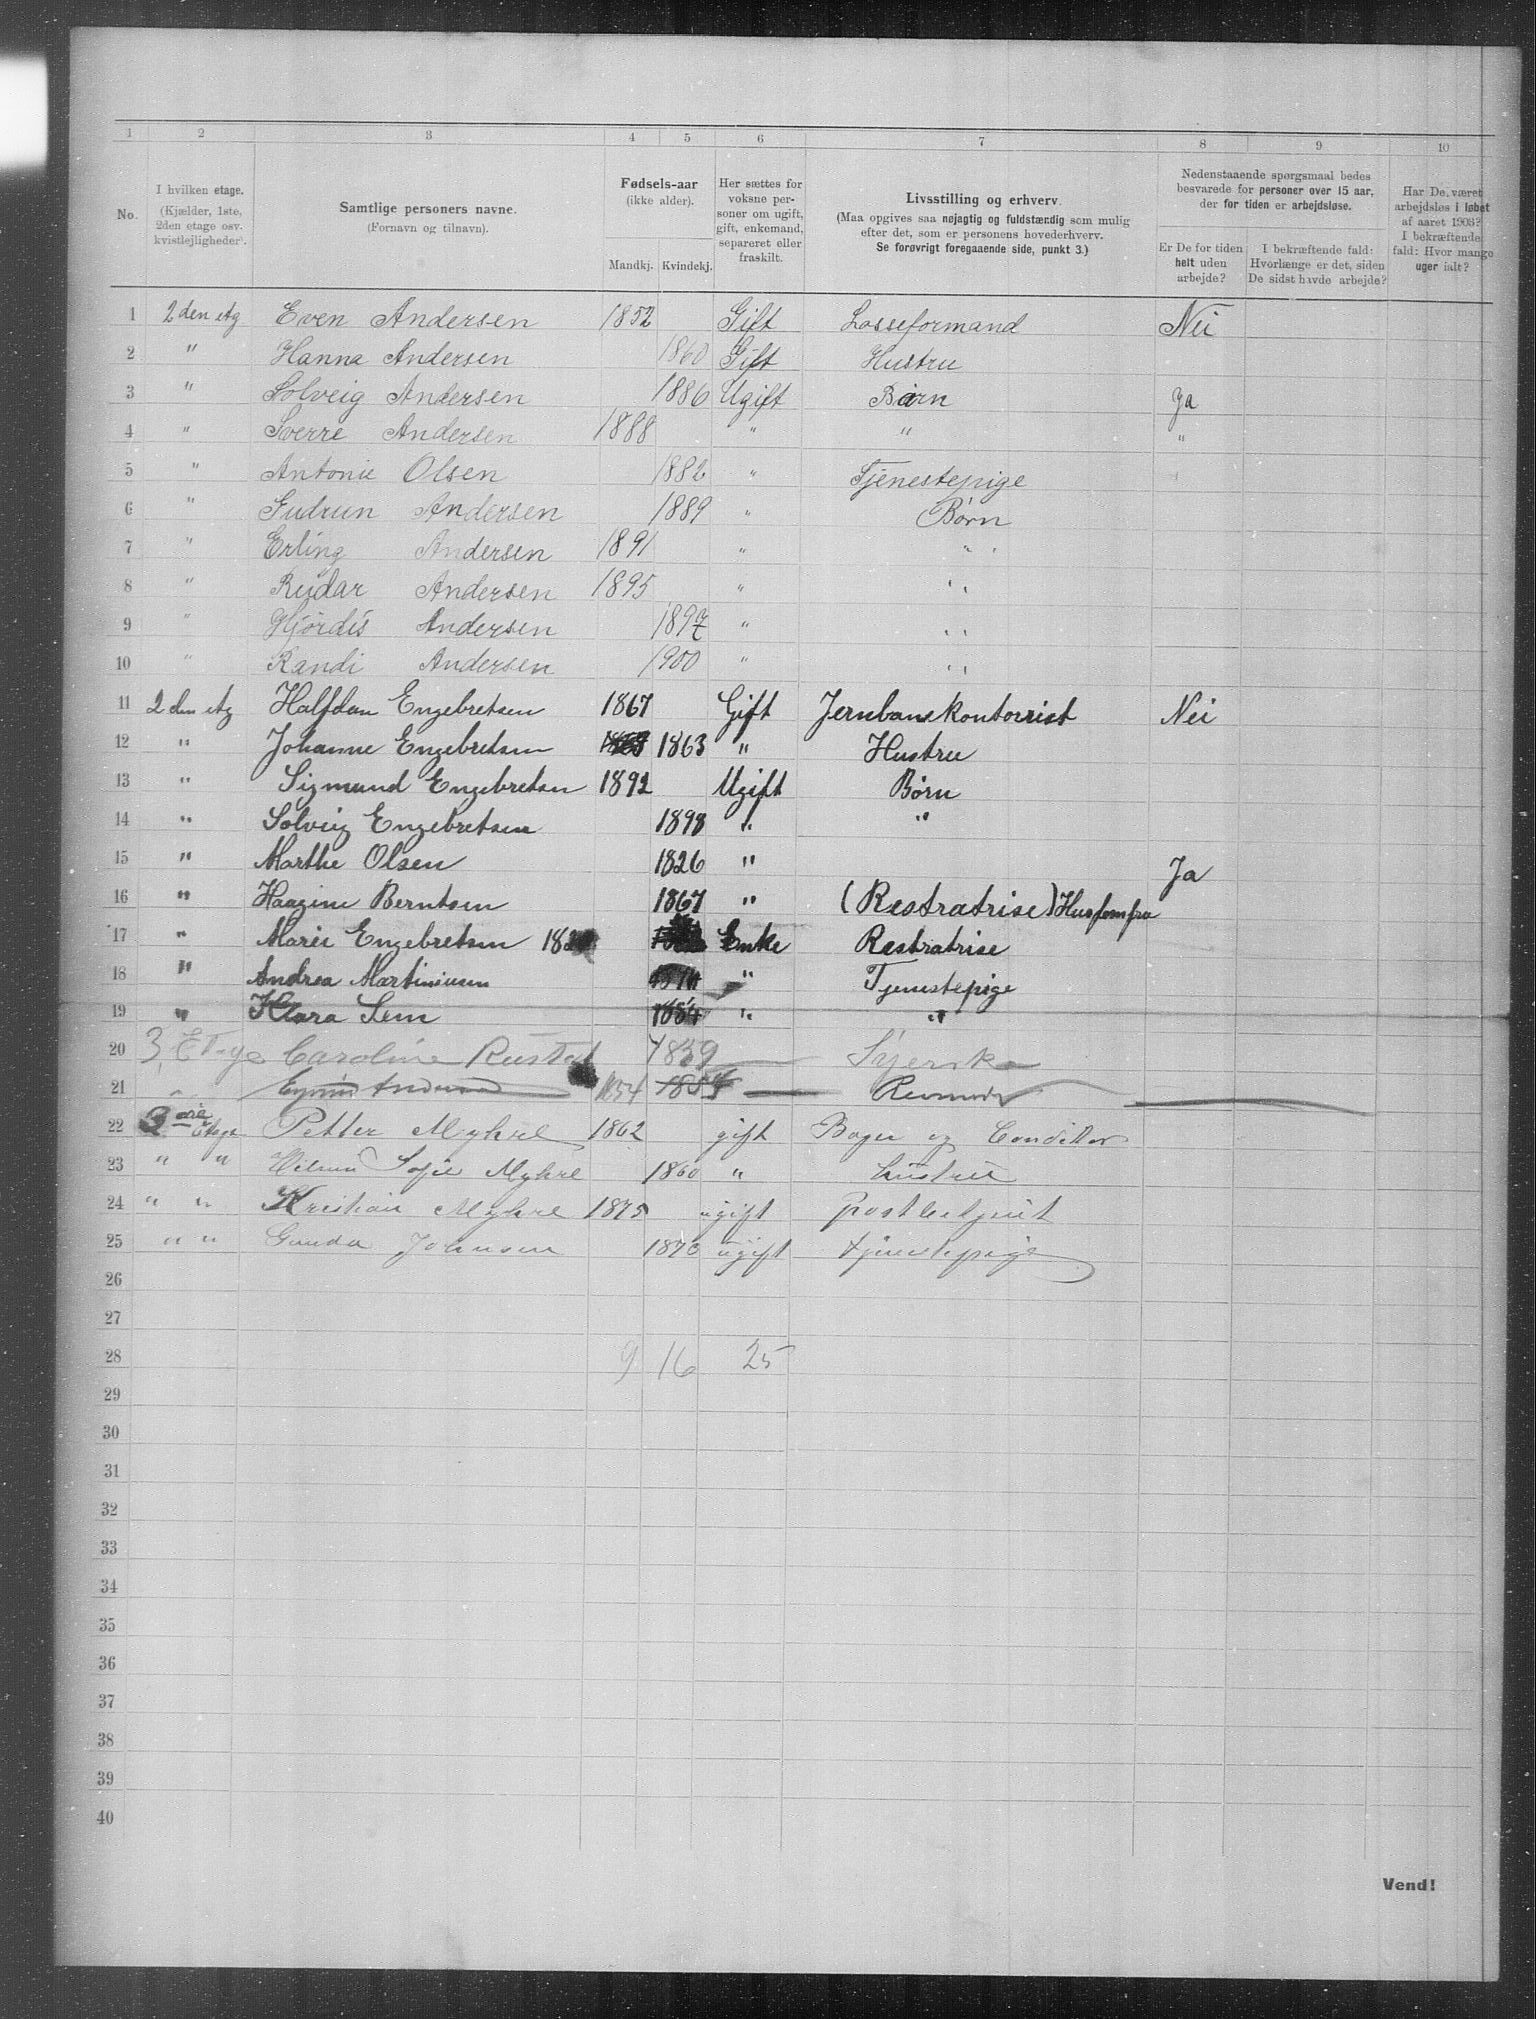 1 2 3 4 5 6 7 8 9 10
No.
I hvilken etage.
(Kjælder, 1ste,
2den etage osv.
kvistlejligheder).
Samtlige personers navne.
(Fornavn og tilnavn).
Fødsels-aar
(ikke alder).
Mandkj. Kvindekj.
Her sættes for
voksne per-
soner om ugift,
gift, enkemand,
separeret eller
fraskilt.
Livsstilling og erhverv.
(Maa opgives saa nøjagtig og fuldstændig som mulig
efter det, som er personens hovederhverv.
Se forøvrigt foregaaende side, punkt 3.)
Nedenstaaende spørgsmaal bedes
besvarede for personer over 15 aar,
der for tiden er arbejdsløse.
Er De for tiden
helt uden
arbejde?
I bekræftende fald:
Hvorlænge er det, siden
De sidst havde arbejde?
Har De været
arbejdsløs i løbet
af aaret 1903?
I bekræftende
fald: Hvor mange
uger ialt?
1 2den etg Even Andersen 1852 Gift Lasseformand Nei
2 " Hanna Andersen 1860 Gift Hustru
3 " Solveig Andersen 1886 Ugift Barn Ja
4 " Sverre Andersen 1888 " " "
5 " Antonie Olsen 1882 " Tjenestepige
6 " Gudrun Andersen 1889 " Børn
7 " Erling Andersen 1891 " "
8 " Reidar Andersen 1895 " "
9 " Hjördis Andersen 1897 " "
10 " Randi Andersen 1900 " "
11 2den etg Halfdan Engebretsen 1867 Gift Jernbanekontorrist Nei
12 " Johanne Engebretsen 1863 " Hustru
13 " Sigmund Engebretsen 1892 Ugift Børn
14 " Solveig Engebretsen 1898 " "
15 " Marthe Olsen 1826 " Ja
16 " Haagine Berntsen 1867 " (Restratrise) Husjomfru
17 " Marie Engebretsen Enke Restratrise
18 " Andrea Martiniusen " Tjenestepige
19 " Klara Lem 1884 " "
20 3 Etage Caroline Rustad 1839 Syerske
21 " 1854
22 3die Etage Petter Myhre 1862 gift Bager og Conditor
23 " " Hilma Sofie Myhre 1860 " hustru
24 " " Kristian Myhre 1875 ugift postbetjent
25 " " Gunda Johnsen 1873 ugift tjenestepige
26
27
28 9 16 25
29
30
31
32
33
34
35
36
37
38
39
40
Vend!